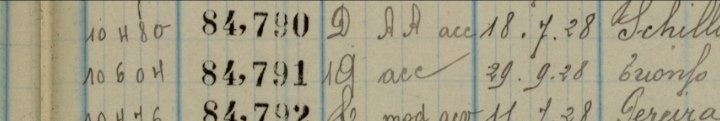 10480 84,790 D AA acc 18.7.28 Schill
10604 84,791 19 acc 29.9.28 Trionfo
10476 84,792 mod acc 11 7 28 Pereira